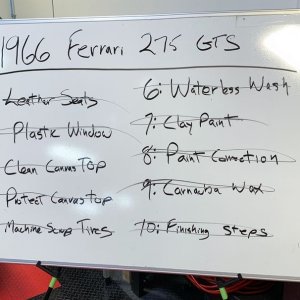 1966 Ferrari 275 GTS
Leather Seats
Plastic Window
Clean Canvas Top
Protect Canvas Top
Machine Scrub Tires
6: Waterless Wash
7: Clay Paint
8: Paint Correction
9: Carnauba Wax
10: Finishing Steps